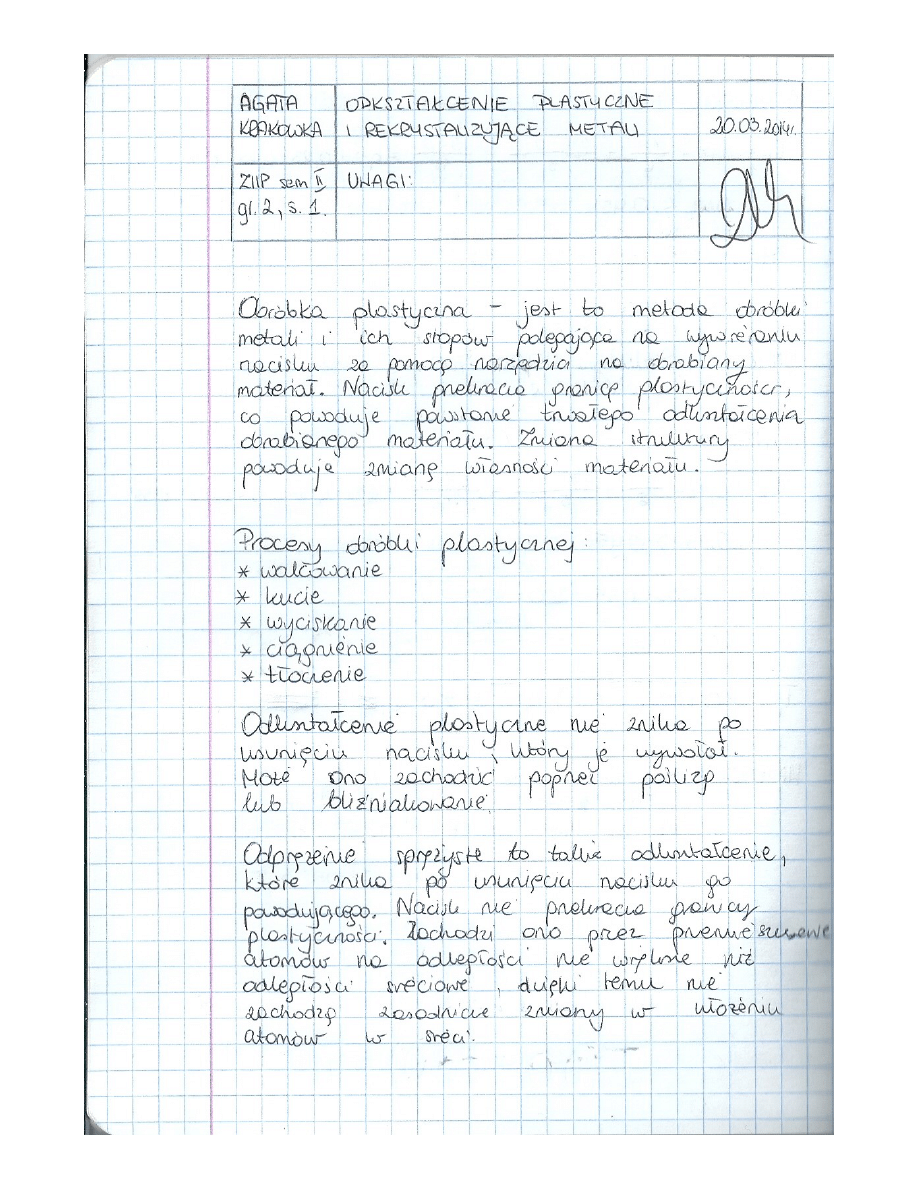 AGATA KRAKOWKA
ODKSZTAŁCENIE PLASTYCZNE
I REKRYSTALIZUJĄCE METALI
20.03.2014r.
ZIIP sem II
gr. 2, s. 1.
UWAGI:
Obróbka plastyczna – jest to metoda obróbki
metali i ich stopów polegająca na wywieraniu
nacisku za pomocą narzędzi na obrabiany
materiał. Nacisk przekracza granicę plastyczności,
co powoduje powstanie trwałego odkształcenia
obrabianego materiału. Zmiana struktury
powoduje zmianę własności materiału.
Procesy obróbki plastycznej:
* walcowanie
* kucie
* wyciskanie
* ciągnienie
* tłoczenie
Odkształcenie plastyczne nie znika po
usunięciu nacisku, który je wywołał.
Może ono zachodzić poprzez poślizg
lub bliźniakowanie.
Odprężenie sprężyste to takie odkształcenie,
które znika po usunięciu nacisku go
powodującego. Nacisk nie przekracza granicy
plastyczności. Zachodzi ono przez przemieszczenie
atomów na odległości nie większe niż
odległości sieciowe, dzięki temu nie
zachodzą zasadnicze zmiany w ułożeniu
atomów w sieci.